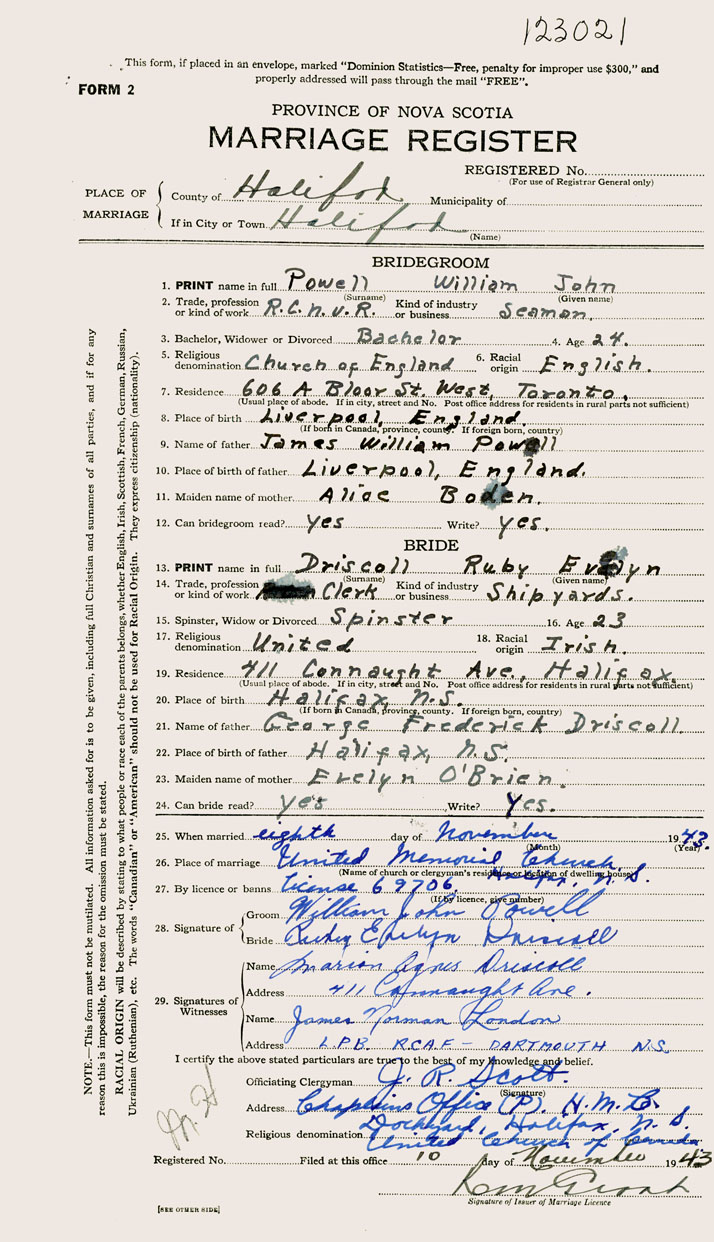 123021
This form, if placed in an envelope, marked "Dominion Statistics—Free, penalty for improper use $300," and
properly addressed will pass through the mail "FREE".
FORM 2
PROVINCE OF NOVA SCOTIA
MARRIAGE REGISTER
REGISTERED No.
(For use of Registrar General only)
PLACE OF MARRIAGE
County of Halifax Municipality of
If in City or Town Halifax
(Name)
BRIDEGROOM
1. PRINT name in full Powell William John
(Surname) (Given name)
2. Trade, profession or kind of work R.C.N.V.R. Kind of industry or business Seaman.
3. Bachelor, Widower or Divorced Bachelor 4. Age 24.
5. Religious denomination Church of England 6. Racial origin English.
7. Residence 606 A Bloor St. West, Toronto,
(Usual place of abode. If in city, street and No. Post office address for residents in rural parts not sufficient)
8. Place of birth Liverpool, England.
(If born in Canada, province, county. If foreign born, country)
9. Name of father James William Powell
10. Place of birth of father Liverpool, England.
11. Maiden name of mother Alice Boden.
12. Can bridegroom read? Yes Write? Yes.
BRIDE
13. PRINT name in full Driscoll Ruby Evelyn
(Surname) (Given name)
14. Trade, profession or kind of work Clerk Kind of industry or business Shipyards.
15. Spinster, Widow or Divorced Spinster 16. Age 23
17. Religious denomination United 18. Racial origin Irish.
19. Residence 411 Connaught Ave., Halifax.
(Usual place of abode. If in city, street and No. Post office address for residents in rural parts not sufficient)
20. Place of birth Halifax, N.S.
(If born in Canada, province, county. If foreign born, country)
21. Name of father George Frederick Driscoll.
22. Place of birth of father Halifax, N.S.
23. Maiden name of mother Evelyn O'Brien.
24. Can bride read? Yes Write? Yes.
25. When married eighth day of November 1943.
(Month) (Year)
26. Place of marriage United Memorial Church, Halifax, N.S.
(Name of church or clergyman's residence or location of dwelling house)
27. By licence or banns License 69706
(If by licence, give number)
28. Signature of
Groom William John Powell
Bride Ruby Evelyn Driscoll
29. Signatures of Witnesses
Name Marion Agnes Driscoll
Address 411 Connaught Ave.
Name James Norman London
Address L.P.B. RCAF - DARTMOUTH N.S.
I certify the above stated particulars are true to the best of my knowledge and belief.
Officiating Clergyman J. R. Scott.
(Signature)
Address Chaplains Office (P). H.M.C.
Dockyard, Halifax, N.S.
Religious denomination United Church of Canada
Registered No. Filed at this office 10 day of November 1943
Signature of Issuer of Marriage Licence
[SEE OTHER SIDE]
NOTE.—This form must not be mutilated. All information asked for is to be given, including full Christian and surnames of all parties, and if for any
reason this is impossible, the reason for the omission must be stated.
RACIAL ORIGIN will be described by stating to what people or race each of the parents belongs, whether English, Irish, Scottish, French, German, Russian,
Ukrainian (Ruthenian), etc. The words "Canadian" or "American" should not be used for Racial Origin. They express citizenship (nationality).